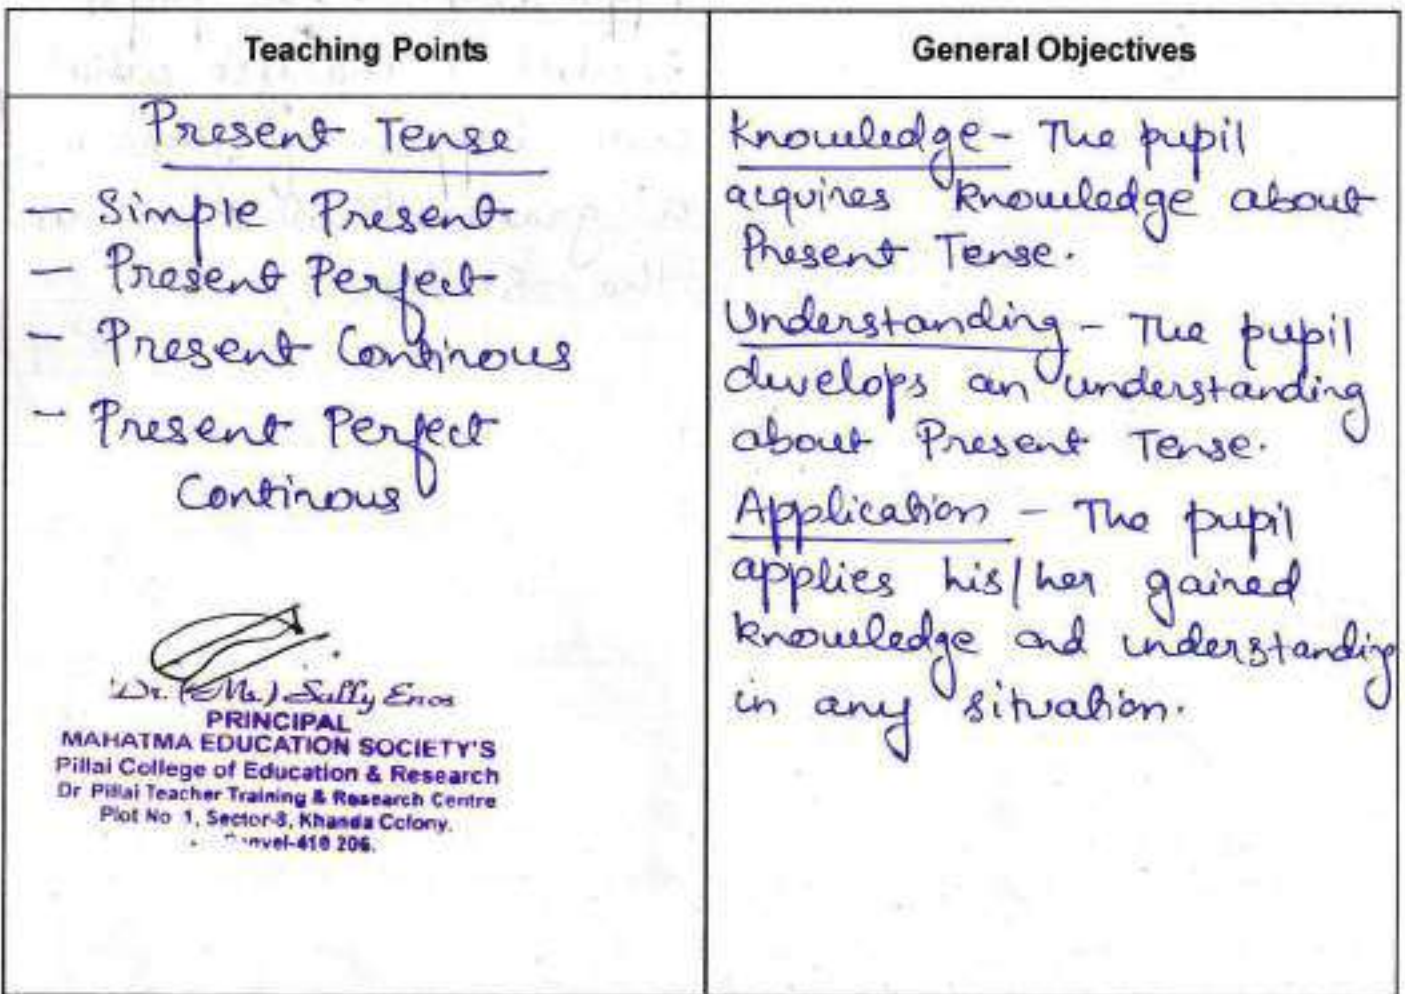 Teaching Points
Present Tense
- Simple Present
- Present Perfect
- Present Continous
- Present Perfect
Continous
Dr. (Ms.) Sally Enos
PRINCIPAL
MAHATMA EDUCATION SOCIETY'S
Pillai College of Education & Research
Dr Pillai Teacher Training & Research Centre
Plot No 1, Sector-8, Khanda Colony,
410 206.
General Objectives
Knowledge - The pupil
acquires knowledge about
Present Tense.
Understanding - The pupil
develops an understanding
about Present Tense.
Application - The pupil
applies his/her gained
knowledge and understanding
in any situation.